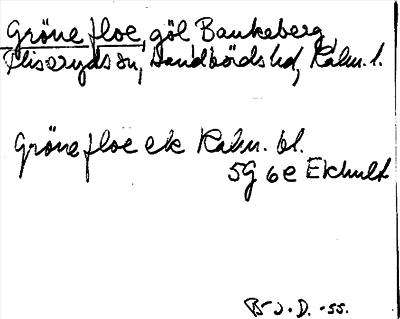 Gröne floe, göl Bankeberg,
Fliseryds sn, Handbörds hd, Kalm. l.
Gröne floe ek Kalm. bl.
5G 6e Ekhult
B J. D. -55.